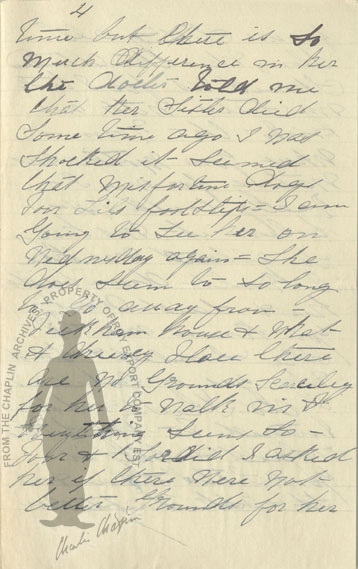 4
time but there is so
much difference in her
the doctor told me
that her Sister died
some time ago I was
shocked it seemed
that misfortune dogs
poor Lil's footsteps = I am
going to see her on
Wednesday again = She
does seem to so long
to go away from -
Peckham House & What
a dreary place there
are no grounds scarcely
for her to walk in &
everything seems so -
poor & I asked
her if there were not
better grounds for her
FROM THE CHAPLIN ARCHIVES. PROPERTY OF ROY EXPORT COMPANY EST
Charlie Chaplin